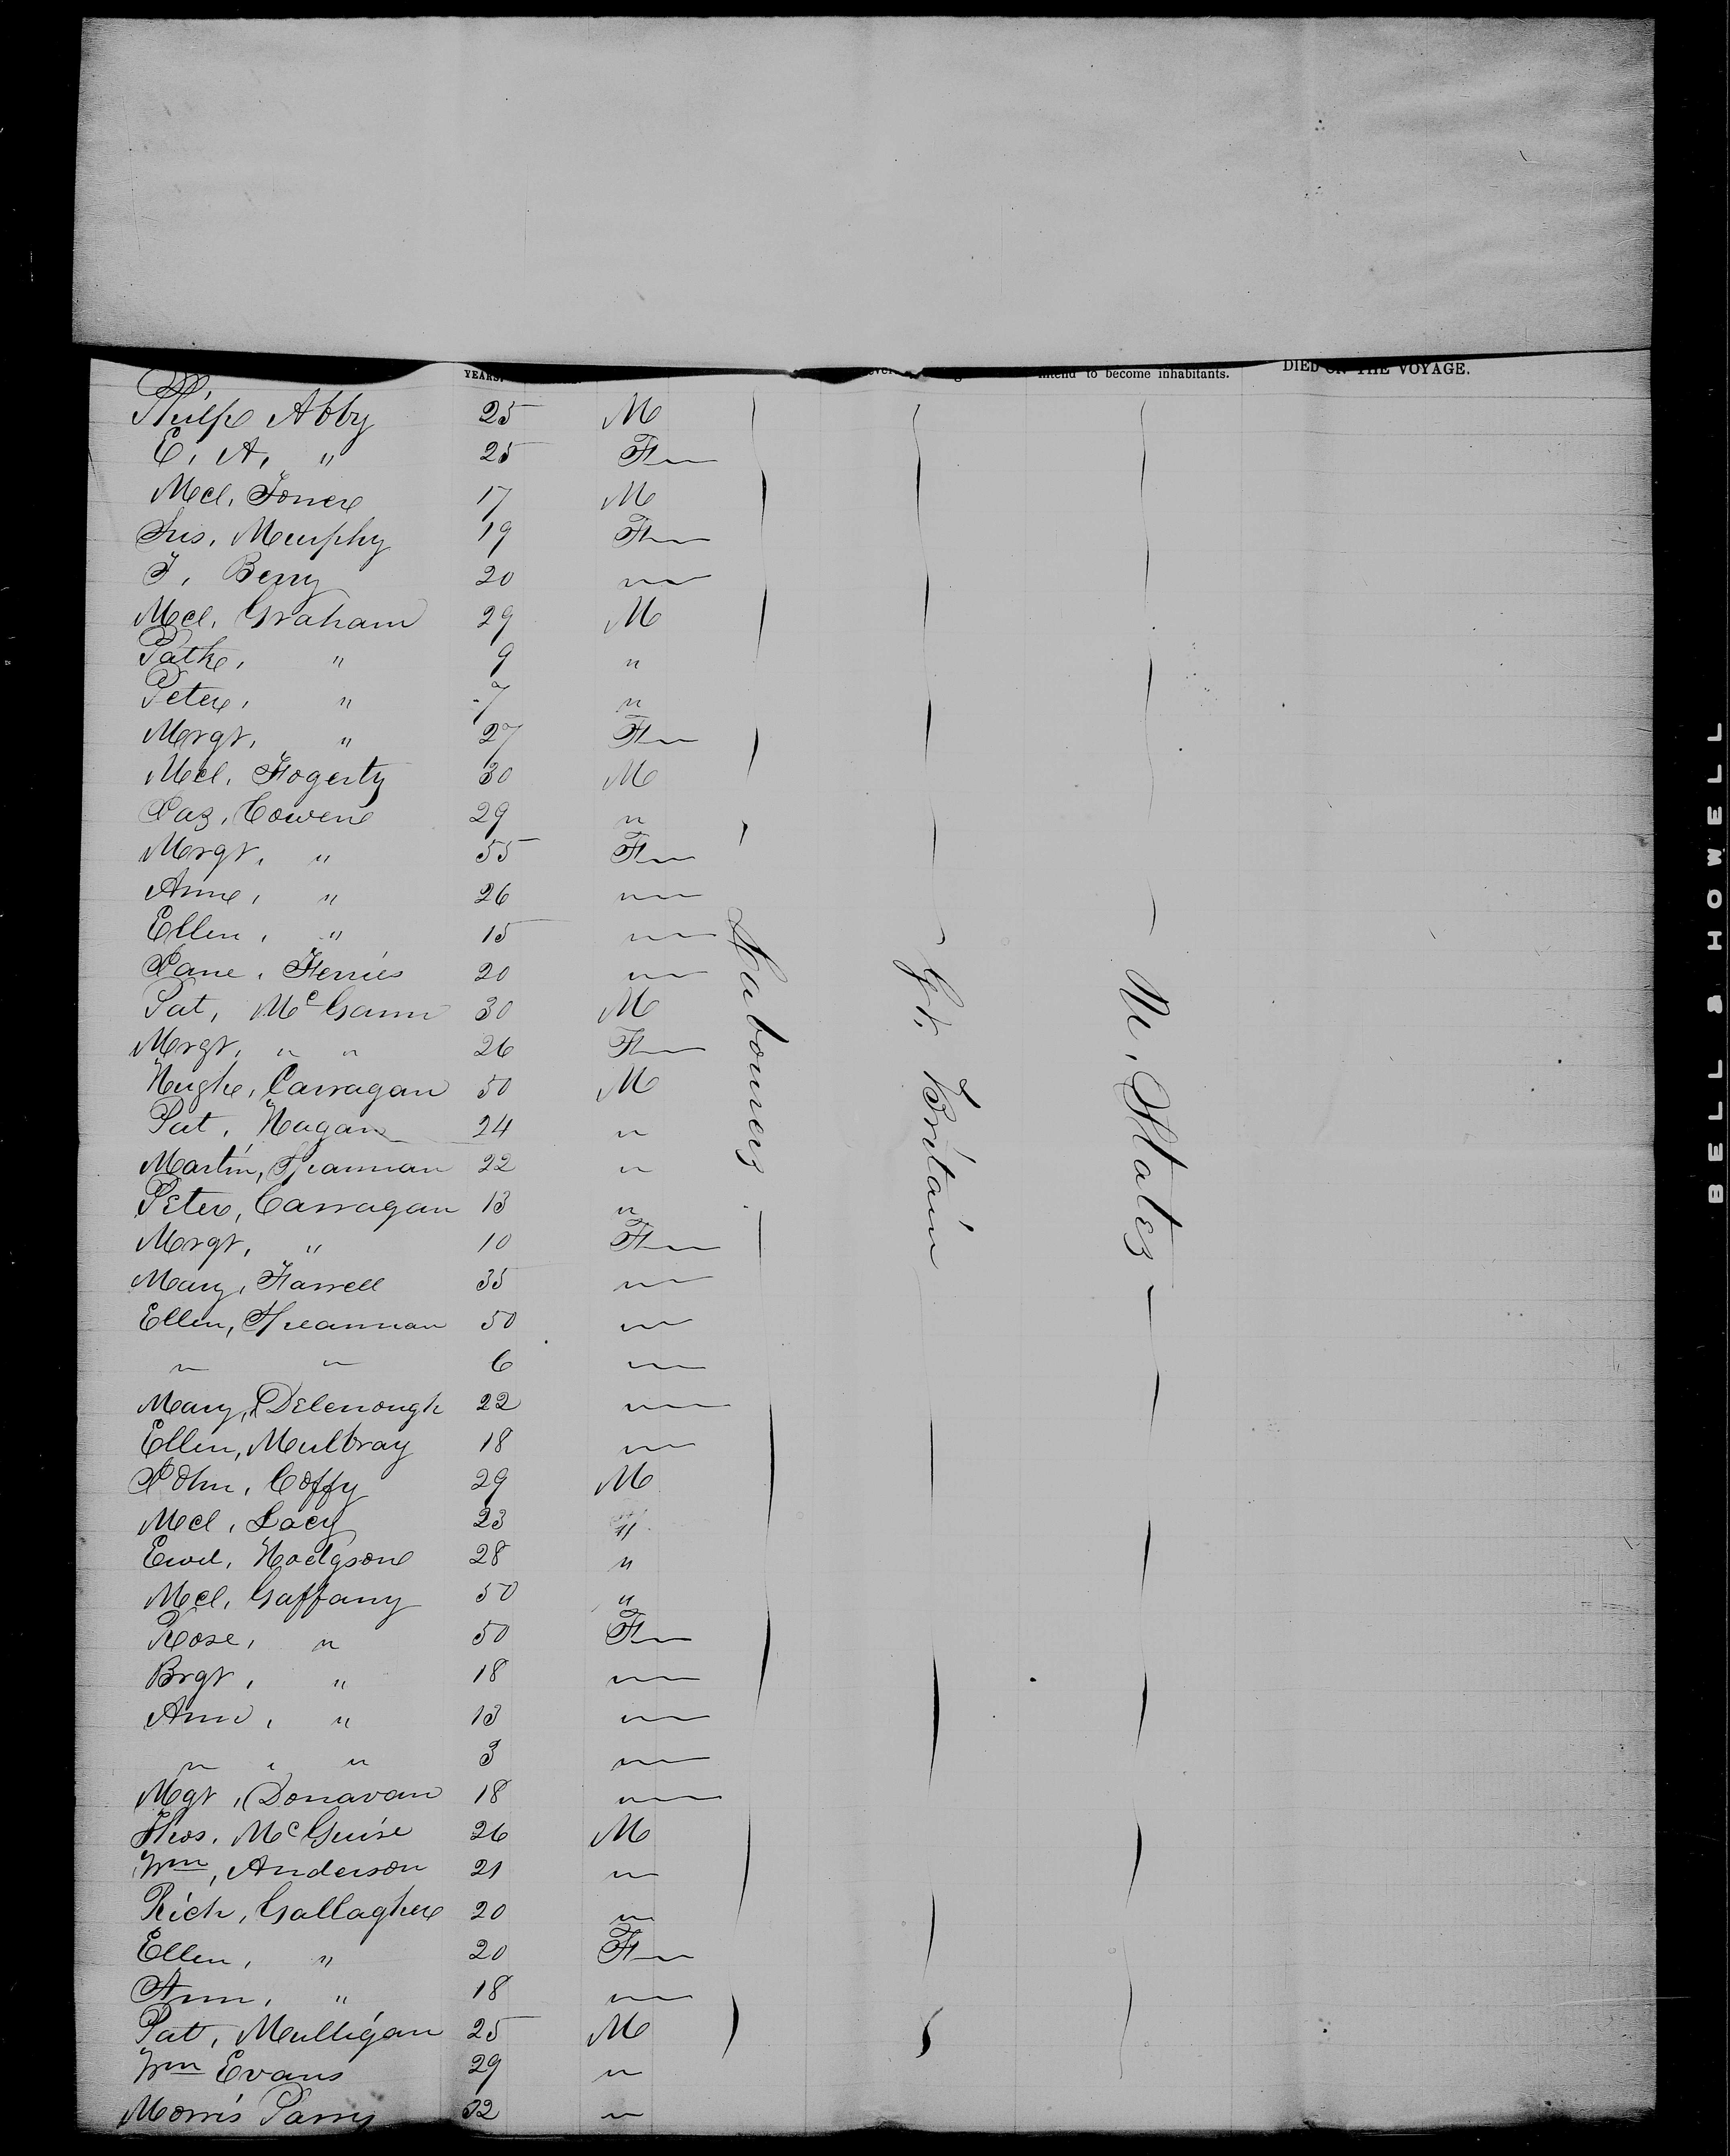 YEARS. intend to become inhabitants. DIED ON THE VOYAGE.
Philip Abby 25 M
E, A, " 25 F
Mcl, Jones 17 M
Murphy 19 F
J, Berry 20 "
Mcl, Graham 29 M
Patk, " 9 "
Peter, " 7 "
Mrgt, " 27 F
Mcl, Fogerty 30 M
Jas, Cowen 29 "
Mrgt, " 55 F
Anne, " 26 "
Ellen, " 15 "
Jane, Ferries 20 "
Pat, McGann 30 M
Mrgt, " " 26 F
Hugh, Carragan 50 M
Pat, Hagan 24 "
Martin, 22 "
Peter, Carragan 13 "
Mrgt, " 10 F
Mary, Farrell 35 "
Ellen, 50 "
" " 6 "
Mary, Delenough 22 "
Ellen, Mulbray 18 "
John, Coffy 29 M
Mcl, Lacy 23 "
Ewd, Hodgson 28 "
Mcl, Gaffany 50 "
Rose, " 50 F
Brgt, " 18 "
Ann, " 13 "
" , " 3 "
Mgt, Donavan 18 "
Thos, McGuire 26 M
Wm, Anderson 21 "
Rich, Gallagher 20 "
Ellen, " 20 F
Ann, " 18 "
Pat, Mulligan 25 M
Wm Evans 29 "
Morris Parry 32 "
Labourers
Gt, Britain
U, States
BELL & HOWELL